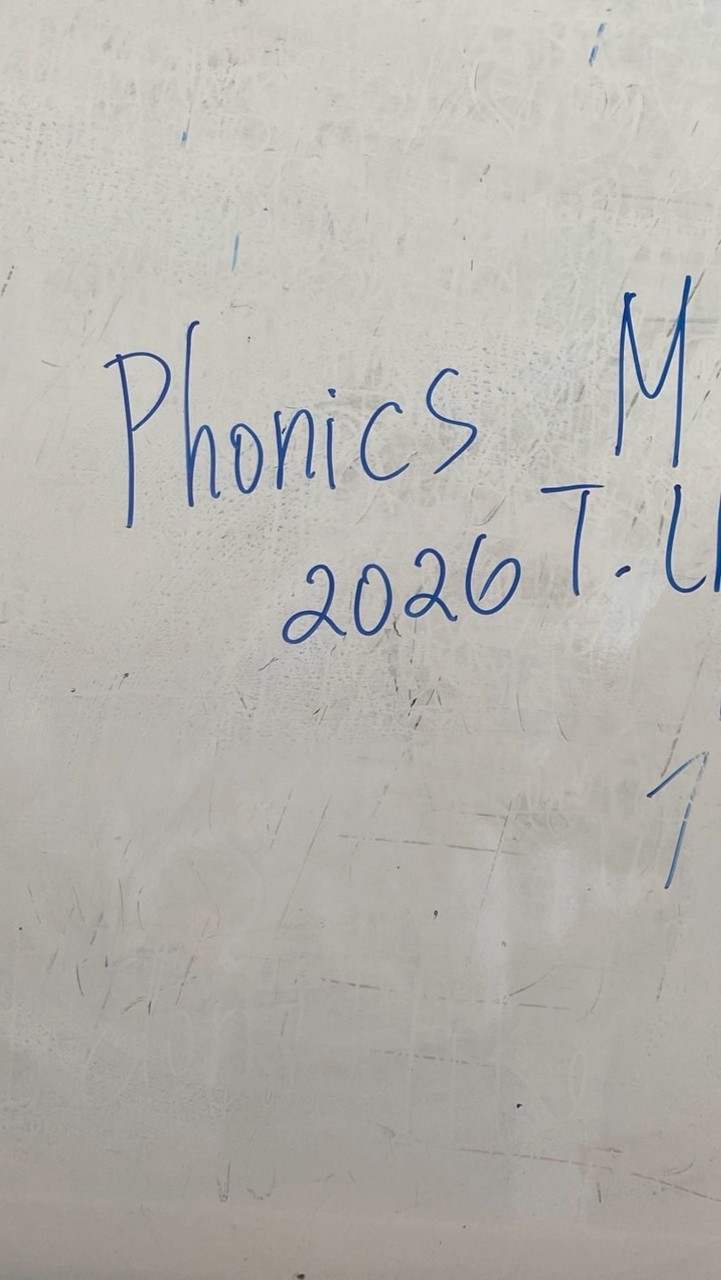 Phonics M
2026 T. U
1